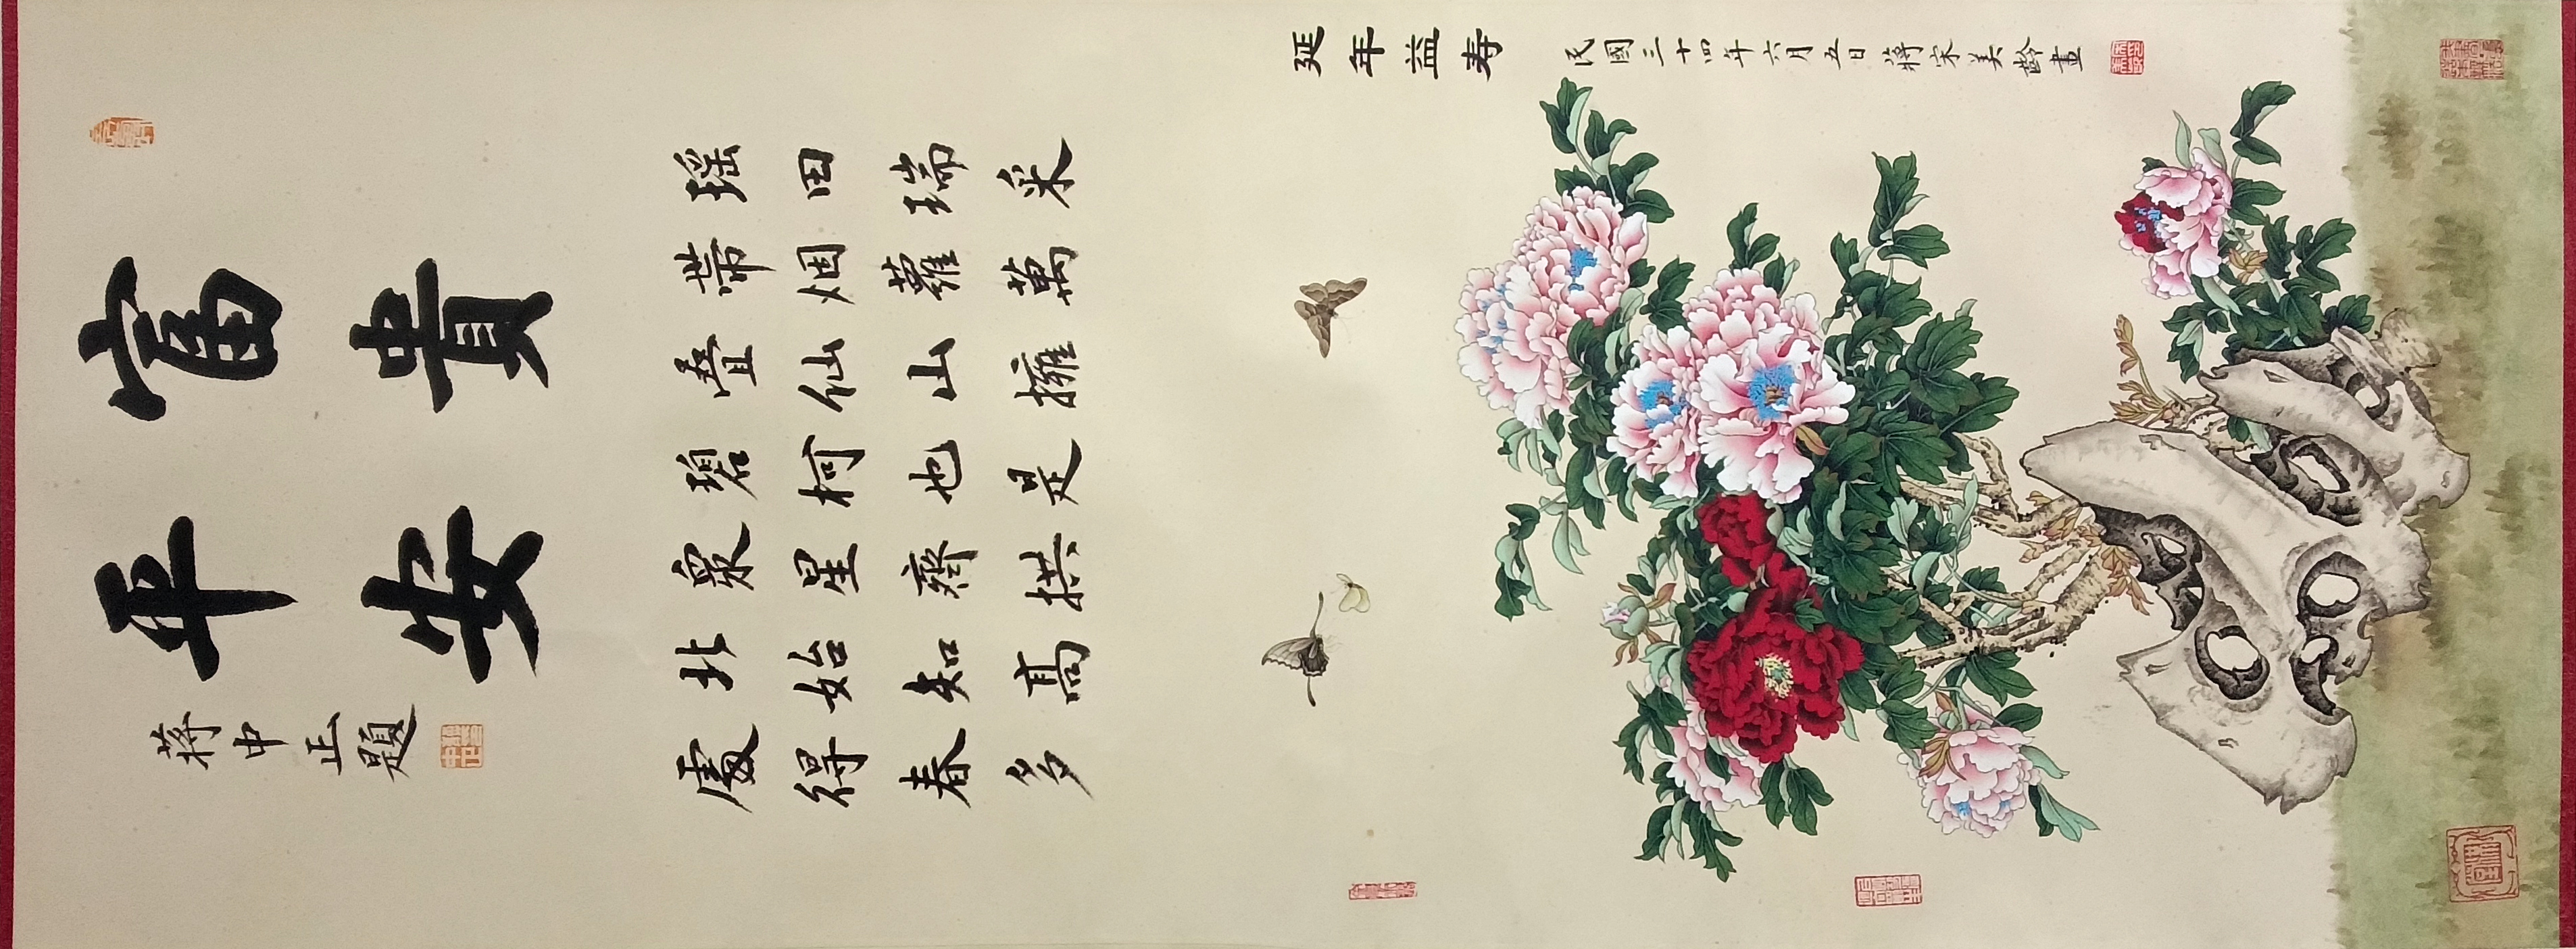 富貴
平安
蔣中正題
瑶田瑞采
帶烟蘿萬
叠仙山擁
碧柯也是
衆星齊拱
北始知高
處得春多
延年益寿
民國三十四年六月五日蔣宋美齡畫